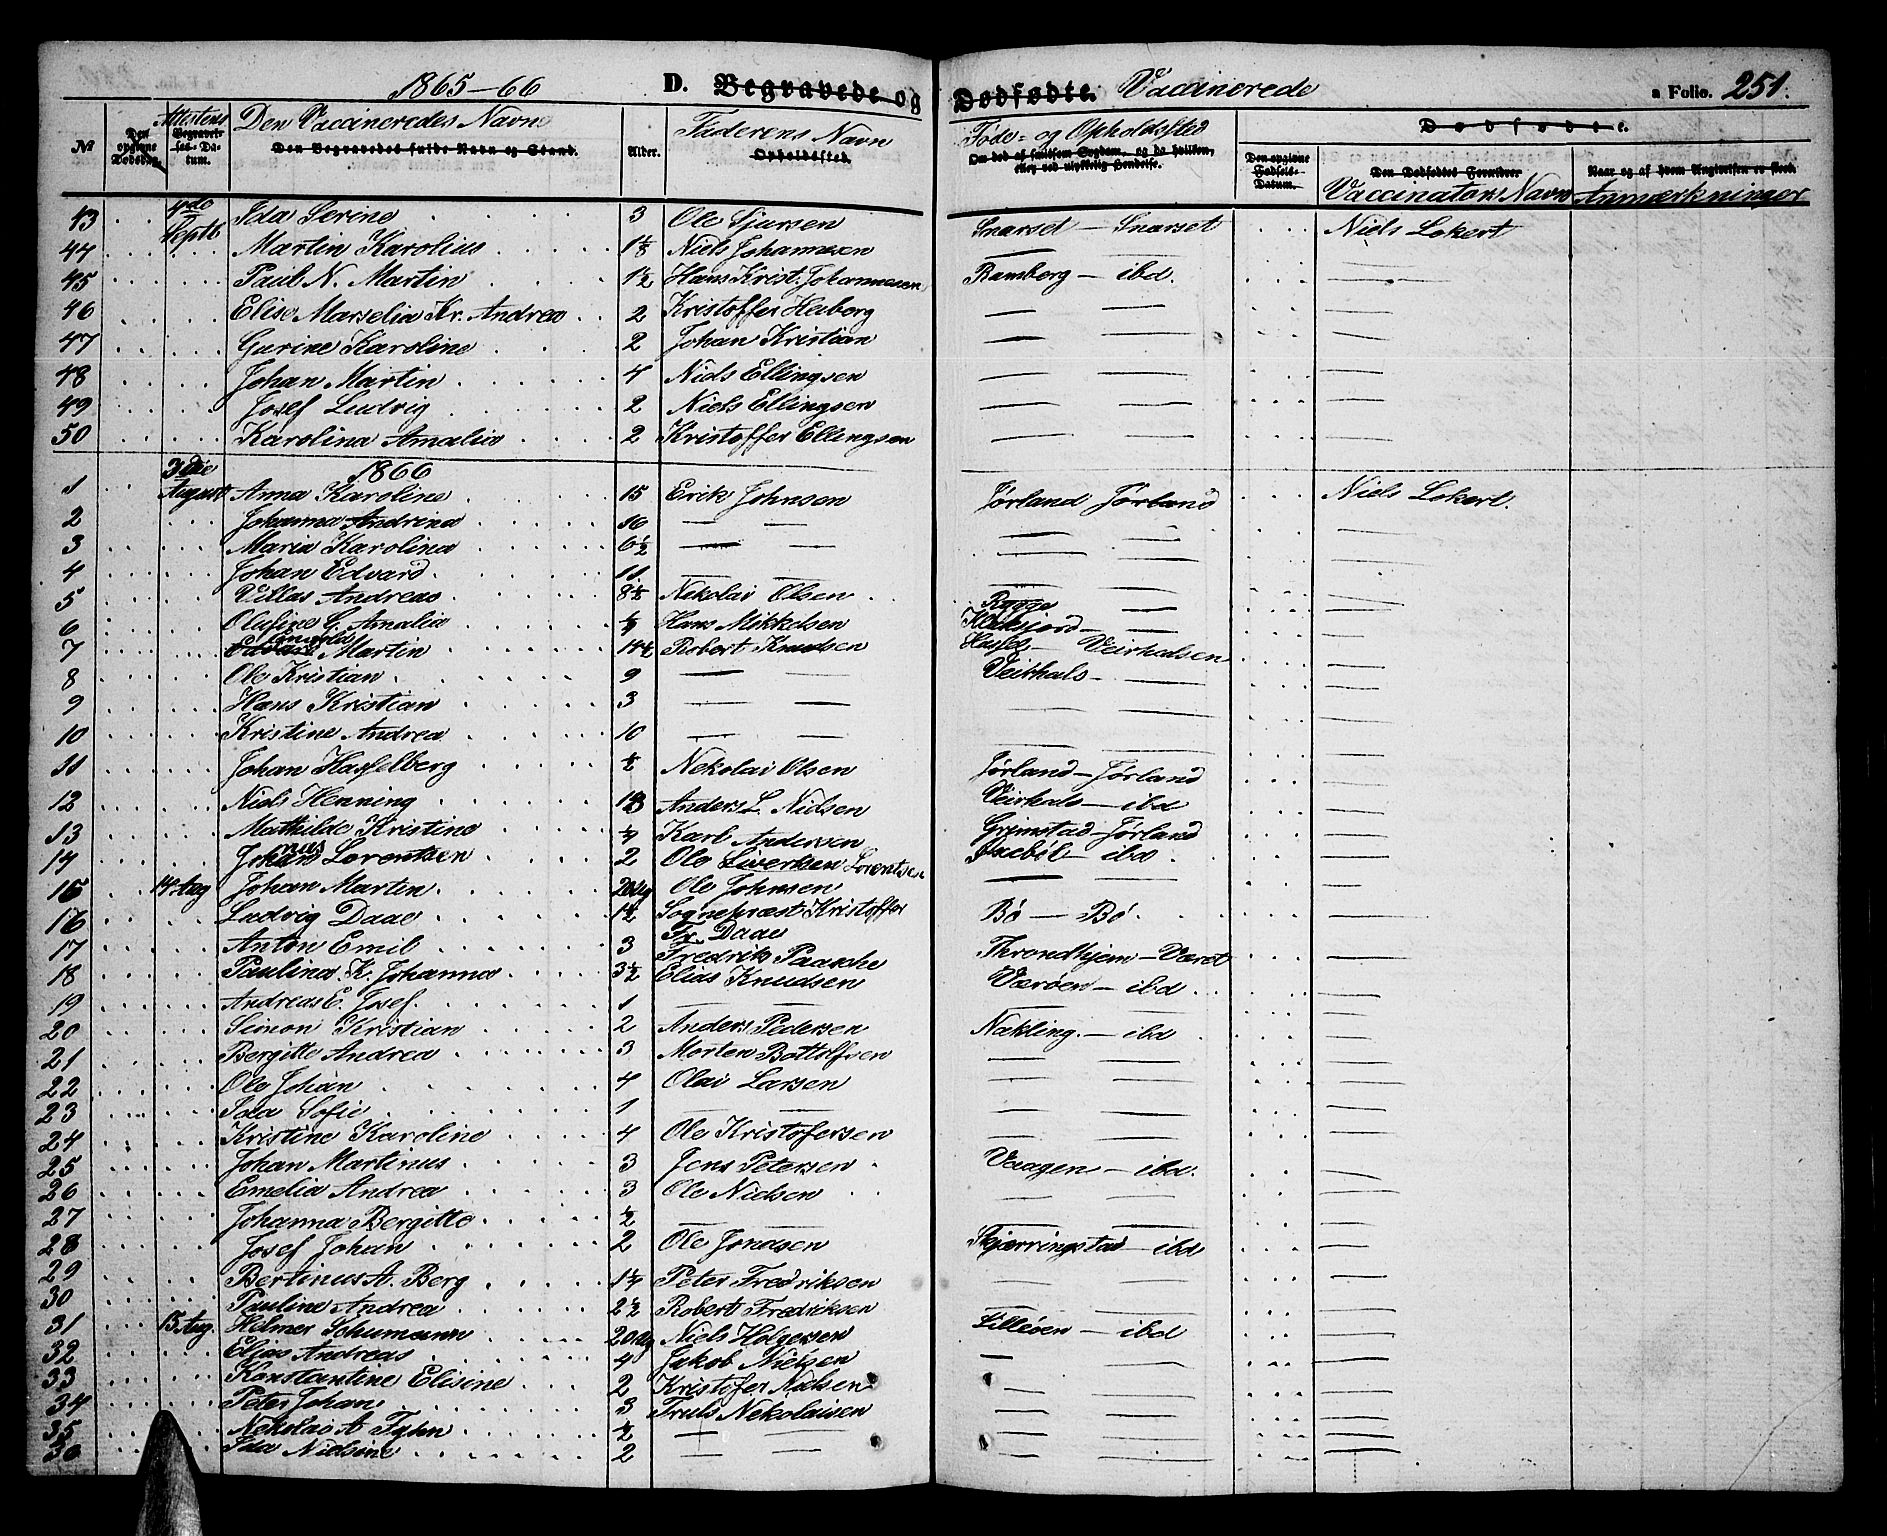 1865-66 D. Begravede og Dødfødte. Vaccinerede a Folio. 251.
№ Den opgivne Dødsdag. Attestens Begravelses-Datum. Den Vaccineredes Navn Den Begravedes fulde Navn og Stand. Alder. Faderens Navn Opholdssted. Føde- og Opholdssted Om død af smitsom Sygdom, og da hvilken, eller ved ulykkelig Hendelse. Dødfødte. Den opgivne Fødsels-Datum. Den Dødfødtes Forældre Vaccinators Navn Naar og af hvem Angivelsen er skeet Anmærkninger
43 4de Septb Ida Serine 3 Ole Sjursen Snarset — Snarset Niels Lokert
44 Martin Karolius 1 1/8 Niels Johannesen — — —
45 Paul N. Martin 1 1/2 Hans Krist. Johannesen Ramberg — ibd. —
46 Elise Marselia Kr. Andrea 2 Kristoffer Heiberg — — —
47 Gurine Karoline 2 Johan Kristian — — —
48 Johan Martin 4 Niels Ellingsen — — —
49 Josef Ludvig 2 Niels Ellingsen — — —
50 Karolina Amalia 2 Kristoffer Ellingsen — — —
1866
1 3die August Anna Karoline 15 Erik Johnsen Jørland Jørland Niels Lokert.
2 Johanna Andrina 10 — — — — —
3 Maria Karolina 6 1/2 — — — — —
4 Johan Edvard 11 — — — — —
5 Villas Andreas 8 1/2 Nekolai Olsen — — —
6 Olufine C. Amalia Hans Mikkelsen — —
7 Martin Robert Knudsen Hassel — Veirhalsen —
8 Ole Kristian 9 — — Veirhals — — —
9 Hans Kristian 3 — — — — —
10 Kristine Andrea 10 — — — — —
11 Johan Hasselberg 1/2 Nekolai Olsen Jørland — Jørland —
12 Niels Henning Anders L. Nielsen Veirhals — ibd —
13 Mathilde Kristine 1/4 Karl Andersen Grimstad — Jørland —
14 Johannes Lorentsen 2 Ole Siverksen Lorentsen — ibd —
15 14 Aug Johan Martin Ole Johnsen — — —
16 Ludvig Daae 1 1/2 Sognepræst Kristoffer Bø — Bø —
Daae
17 Anton Emil 3 Fredrik Paasche Throndhjem — Været —
18 Paulina K. Johanna 3 1/2 Elias Knudsen Værøen — ibd —
19 Andreas E. Josef 1 — — — — —
20 Simon Kristian 2 Anders Pedersen Nakling. — ibd —
21 Bergitte Andrea 3 Morten Bottolfsen — — —
22 Ole Johan 4 Olai Larsen — — —
23 Ida Sofie 1 — — — — —
24 Kristine Karoline 4 Ole Kristofersen — — —
25 Johan Martinus 3 Jens Petersen Vaagen — ibd. —
26 Emelia Andrea 3 Ole Nielsen — — —
27 Johanna Bergitte 1/2 — — — — —
28 Josef Johan 2 Ole Jondsen Skjærringstad — ibd —
29 Bertinus A. Berg 1 1/4 Peter Fredriksen — — —
30 Pauline Andrea 2 1/2 Robert Fredriksen — — —
31 15 Aug. Helmer Schumann Niels Holgersen Lilleøen — ibd —
32 Elias Andreas 4 Jakob Nielsen — — —
33 Konstantine Elisine 2 Kristofer Nielsen — — —
34 Peter Johan 3 Truls Nekolaisen — — —
35 Nekolai A Fyhn 1/2 — — — — —
36 Ida Nielsine 2 — — — — —